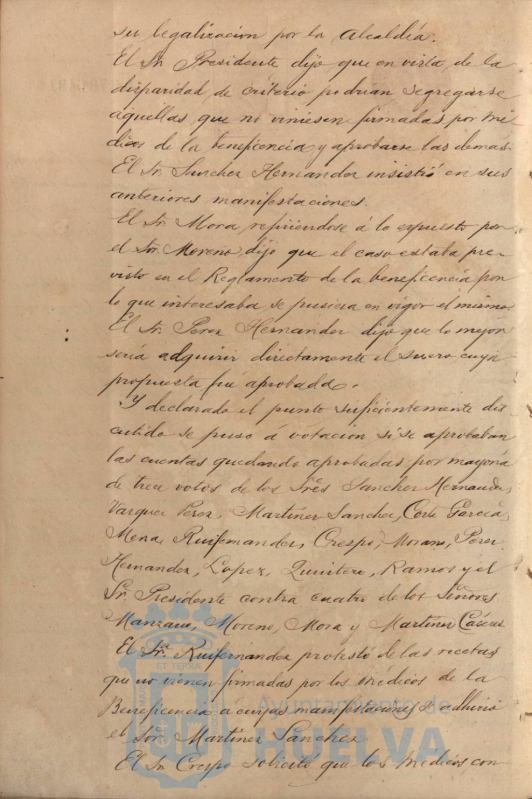 su legalizacion por la Alcaldía.
El Sr. Presidente dijo que en vista de la
disparidad de criterio podrian segregarse
aquellas que no viniesen firmadas por mé
dicos de la beneficencia y aprobarse las demás.
El Sr. Sanchez Hernandez insistió en sus
anteriores manifestaciones.
El Sr. Mora refiriendose á lo expuesto por
el Sor. Moreno dijo que el caso estaba pre-
visto en el Reglamento de la beneficencia por
lo que interesaba se pusiera en vigor el mismo.
El Sr. Perez Hernandez dijo que lo mejor
sería adquirir directamente el suero cuya
propuesta fué aprobada.
Y declarado el punto suficientemente dis
cutido se puso á votación si se aprobaban
las cuentas quedando aprobadas por mayoría
de trece votos de los Srês Sanchez Hernandez,
Vazquez Perez, Martinez Sanchez, Corte Garcia,
Mena, Ruifernandez, Crespo, Morano, Perez
Hernandez, Lopez, Quintero, Ramos y el
Sr. Presidente contra cuatro de los Señores
Manzano, Moreno, Mora y Martinez
El Sr. Ruifernandez protestó de las recetas
que no vienen firmadas por los Medicos de la
Beneficencia a cuyas manifestaciones se adhirió
el Sor. Martinez Sanchez.
El Sr. Crespo solicitó que los Medicos con
Ayuntamiento de
HUELVA